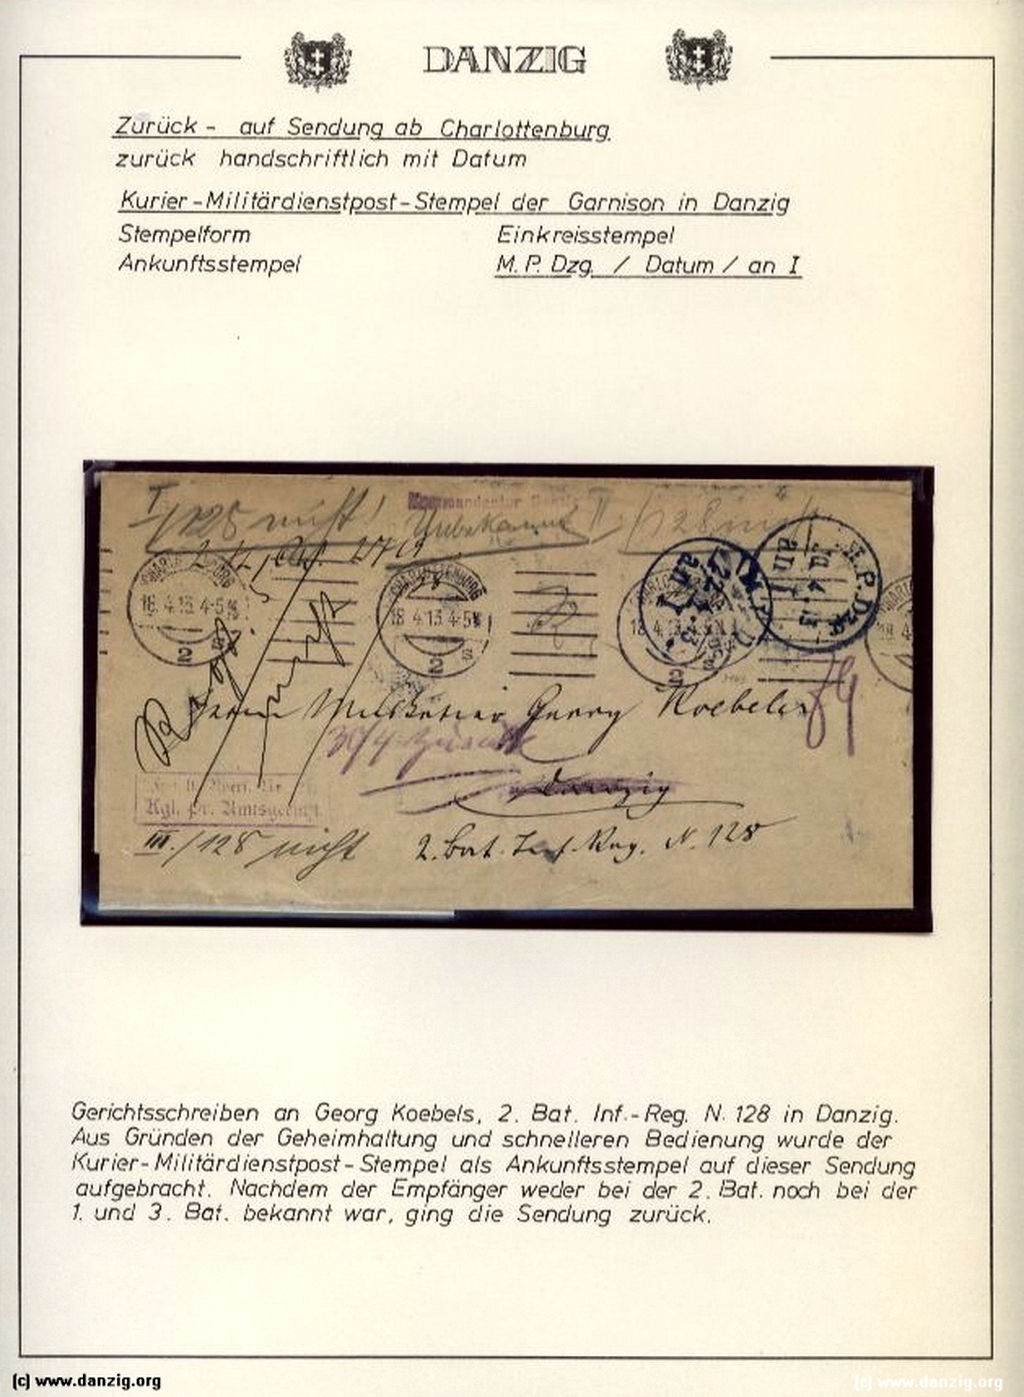 DANZIG
Zurück - auf Sendung ab Charlottenburg
zurück handschriftlich mit Datum
Kurier-Militärdienstpost-Stempel der Garnison in Danzig
Stempelform Einkreisstempel
Ankunftsstempel M. P. Dzg. / Datum / an I
I
128 nicht!
Kommandantur
Unbekannt II
/128 nicht
CHARLOTTENBURG
18.4.13.4-5N
2 s
CHARLOTTENBURG
18.4.13.4-5N
2 s
18.4.13.4-5N
2
an I
M.P.Dzg.
an I
Musketier Georg Koebels
30/4 zurück
Danzig
Kgl. Pr. Amtsgericht
III./128 nicht
2. Bat. Inf. Reg. N. 128
Gerichtsschreiben an Georg Koebels, 2. Bat. Inf.-Reg. N. 128 in Danzig.
Aus Gründen der Geheimhaltung und schnelleren Bedienung wurde der
Kurier-Militärdienstpost-Stempel als Ankunftsstempel auf dieser Sendung
aufgebracht. Nachdem der Empfänger weder bei der 2. Bat. noch bei der
1. und 3. Bat. bekannt war, ging die Sendung zurück.
(c) www.danzig.org (c) www.danzig.org